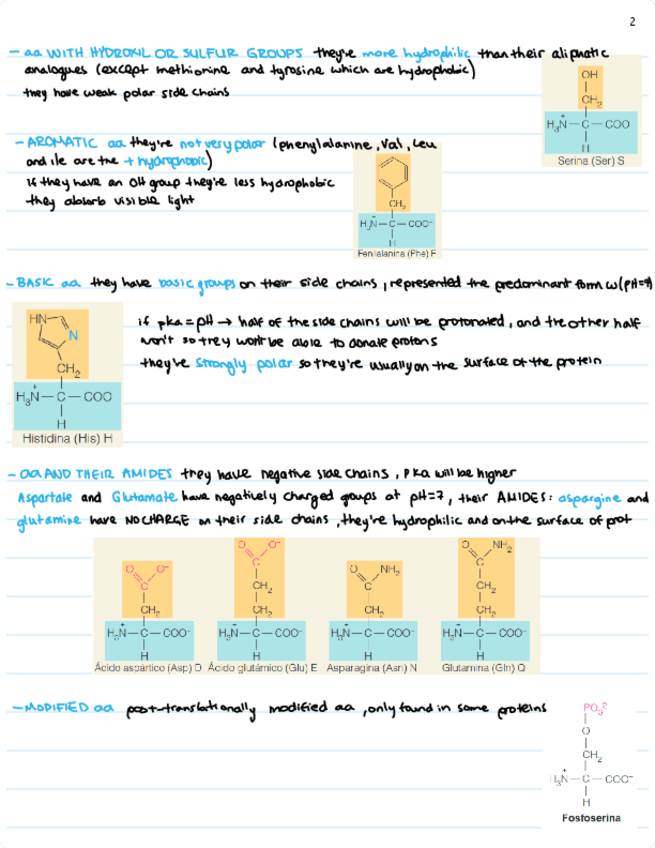 2
- aa WITH HYDROXIL OR SULFUR GROUPS they're more hydrophilic than their aliphatic
analogues (except methionine and tyrosine which are hydrophobic)
they have weak polar side chains
OH
CH2
H3N+ — C — COO
H
Serina (Ser) S
- AROMATIC aa they're not very polar (phenylalanine, Val, Leu
and Ile are the + hydrophobic)
if they have an OH group they're less hydrophobic
they absorb visible light
CH2
H3N+ — C — COO-
H
Fenilalanina (Phe) F
- BASIC aa they have basic groups on their side chains, represented the predominant form w(pH=7)
if pka = pH → half of the side chains will be protonated, and the other half
won't so they won't be able to donate protons
they're strongly polar so they're usually on the surface of the protein
HN
N
CH2
H3N+ — C — COO
H
Histidina (His) H
- aa AND THEIR AMIDES they have negative side chains, pka will be higher
Aspartate and Glutamate have negatively charged groups at pH=7, their AMIDES: aspargine and
glutamine have NO CHARGE on their side chains, they're hydrophilic and on the surface of prot
O O- O O- O NH2 O NH2
C C C C
CH2 CH2 CH2 CH2
CH2 CH2
H3N+ — C — COO- H3N+ — C — COO- H3N+ — C — COO- H3N+ — C — COO-
H H H H
Ácido aspártico (Asp) D Ácido glutámico (Glu) E Asparagina (Asn) N Glutamina (Gln) Q
- MODIFIED aa post-translationally modified aa, only found in some proteins
PO3 2-
O
CH2
H3N+ — C — COO-
H
Fosfoserina